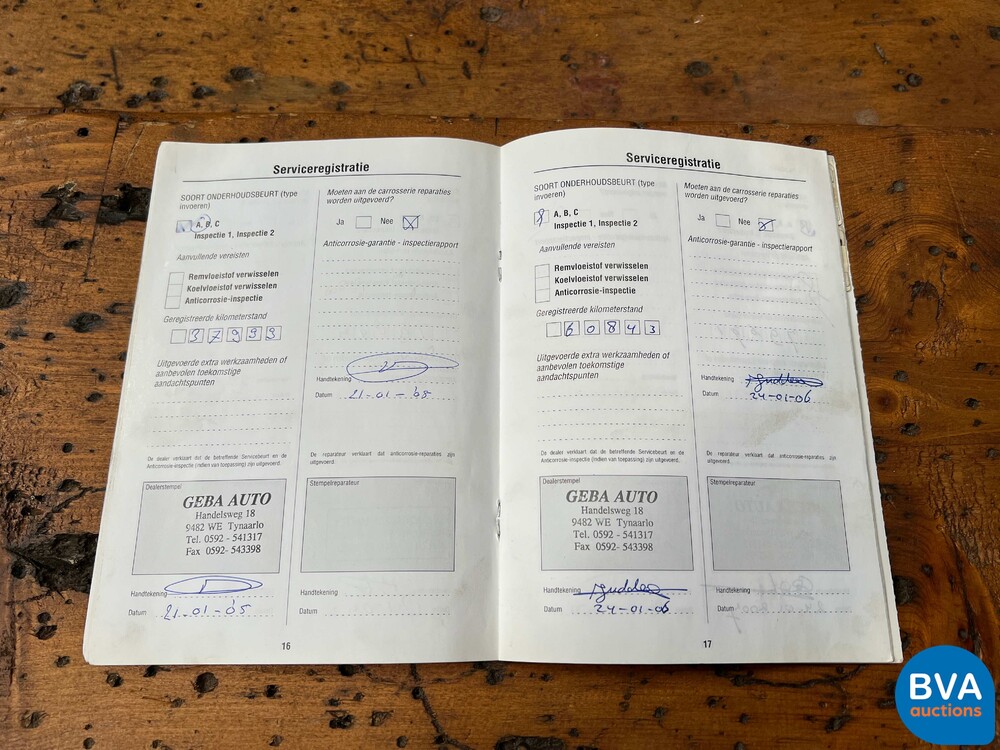 Serviceregistratie
SOORT ONDERHOUDSBEURT (type
invoeren)
A, B, C
Inspectie 1, Inspectie 2
Aanvullende vereisten
Remvloeistof verwisselen
Koelvloeistof verwisselen
Anticorrosie-inspectie
Geregistreerde kilometerstand
37999
Uitgevoerde extra werkzaamheden of
aanbevolen toekomstige
aandachtspunten
De dealer verklaart dat de betreffende Servicebeurt en de
Anticorrosie-inspectie (indien van toepassing) zijn uitgevoerd.
Dealerstempel
GEBA AUTO
Handelsweg 18
9482 WE Tynaarlo
Tel. 0592 - 541317
Fax 0592- 543398
Handtekening
Datum 21-01-'05
Moeten aan de carrosserie reparaties
worden uitgevoerd?
Ja Nee X
Anticorrosie-garantie - inspectierapport
Handtekening
Datum 21-01-'05
De reparateur verklaart dat anticorrosie-reparaties zijn
uitgevoerd.
Stempelreparateur
Handtekening
Datum
16
Serviceregistratie
SOORT ONDERHOUDSBEURT (type
invoeren)
A, B, C
Inspectie 1, Inspectie 2
Aanvullende vereisten
Remvloeistof verwisselen
Koelvloeistof verwisselen
Anticorrosie-inspectie
Geregistreerde kilometerstand
60843
Uitgevoerde extra werkzaamheden of
aanbevolen toekomstige
aandachtspunten
De dealer verklaart dat de betreffende Servicebeurt en de
Anticorrosie-inspectie (indien van toepassing) zijn uitgevoerd.
Dealerstempel
GEBA AUTO
Handelsweg 18
9482 WE Tynaarlo
Tel. 0592 - 541317
Fax 0592- 543398
Handtekening
Datum 24-01-06
Moeten aan de carrosserie reparaties
worden uitgevoerd?
Ja Nee X
Anticorrosie-garantie - inspectierapport
Handtekening
Datum 24-01-06
De reparateur verklaart dat anticorrosie-reparaties zijn
uitgevoerd.
Stempelreparateur
Handtekening
Datum
17
BVA
auctions